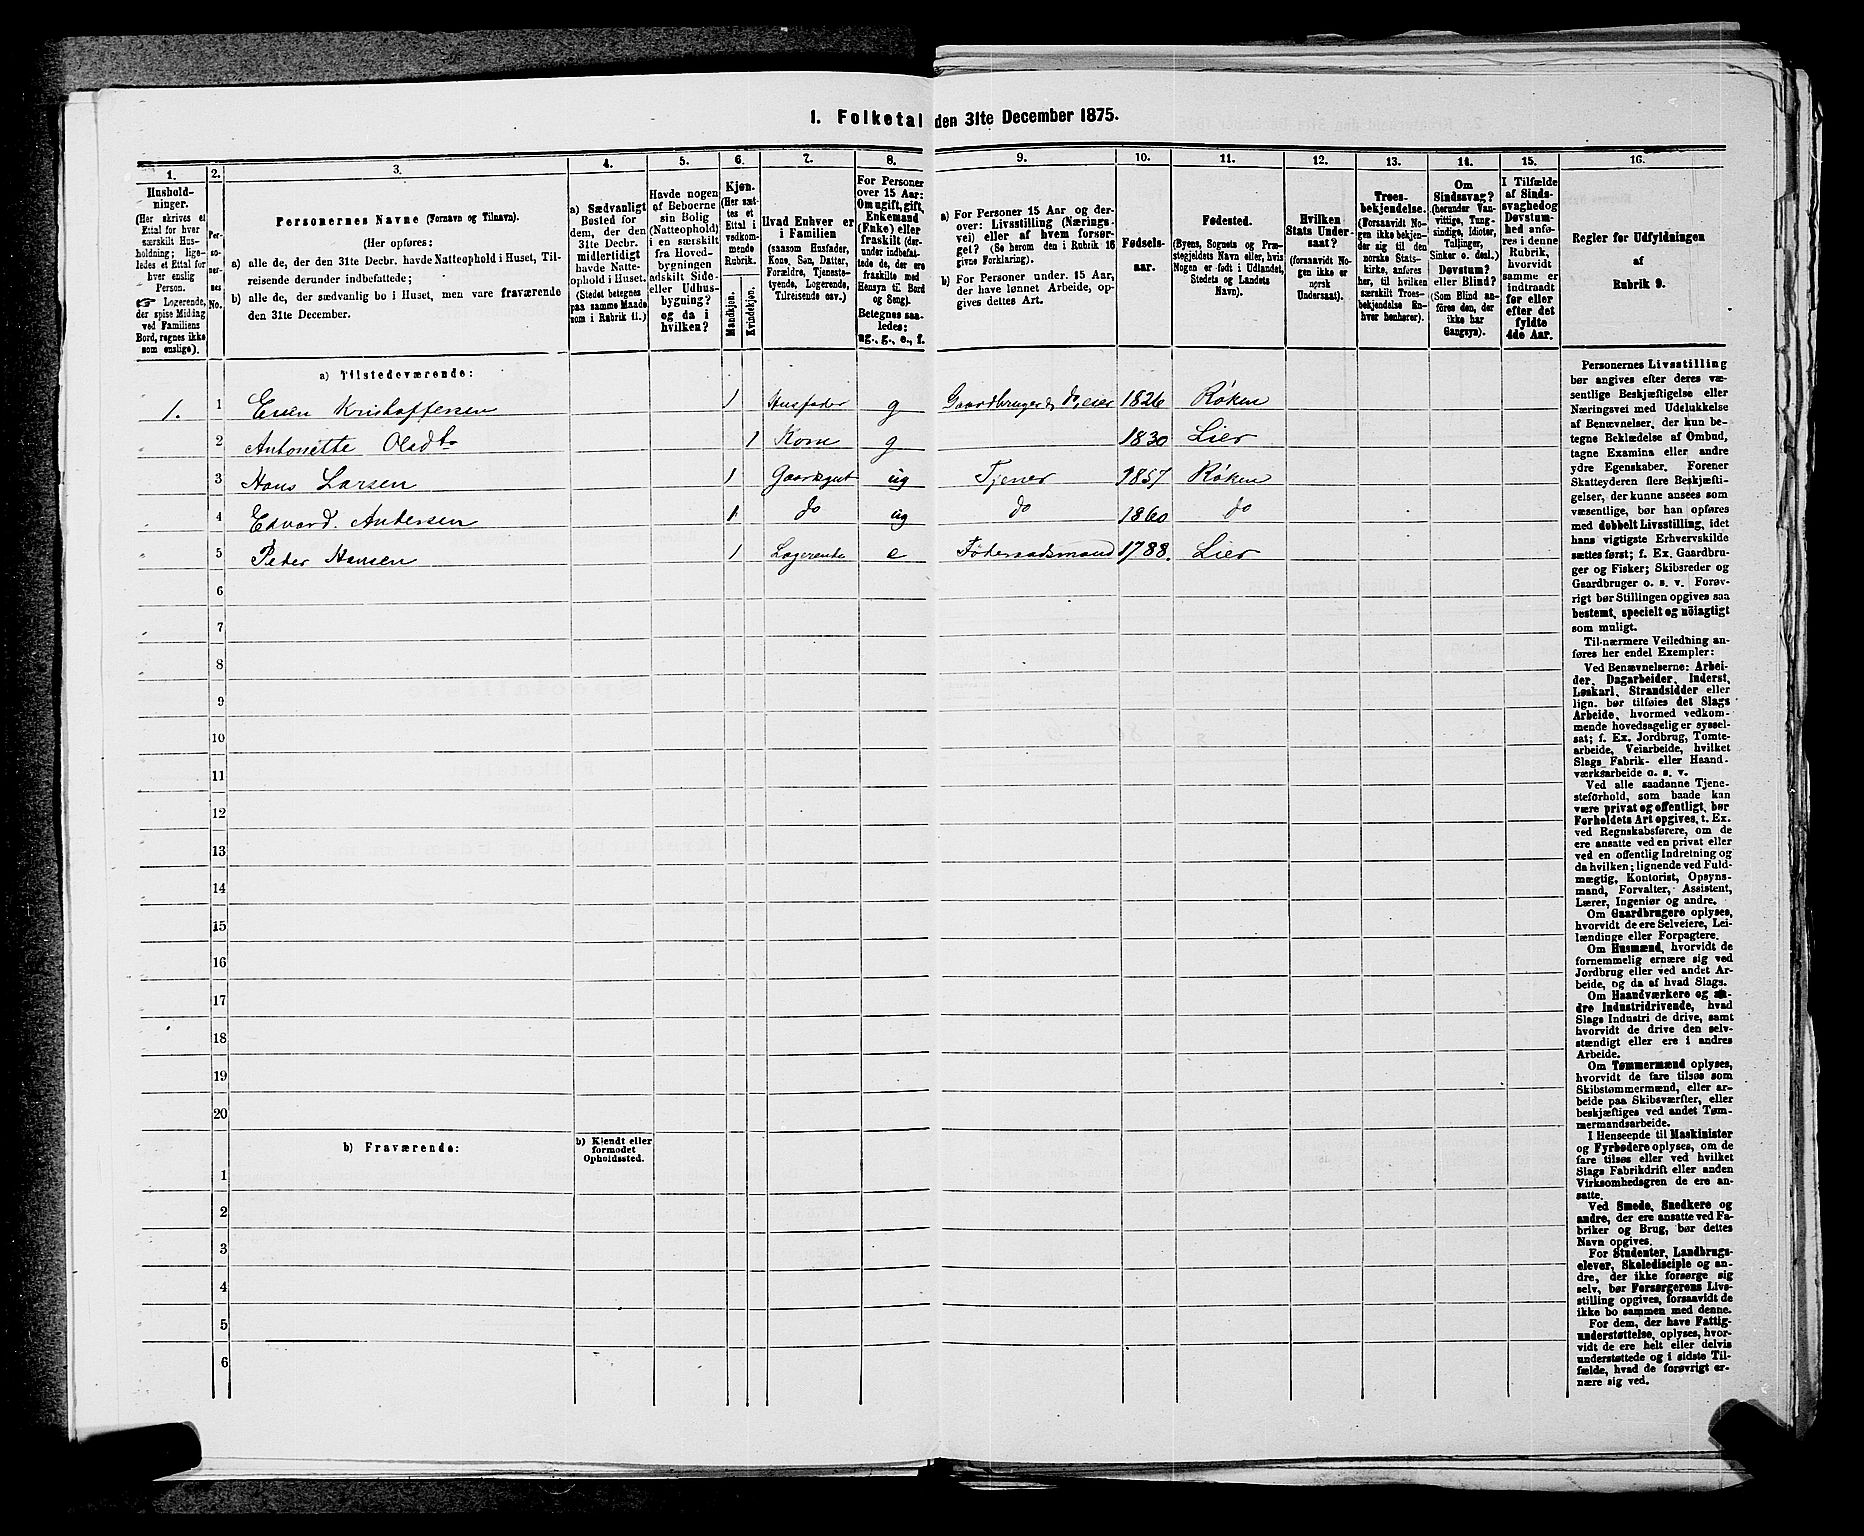 1. Folketal den 31te December 1875.
1.
2.
3.
4.
5.
6.
7.
8.
9.
10.
11.
12.
13.
14.
15.
16.
Hushold-
ninger.
(Her skrives et
Ettal for hver
særskilt Hus-
holdning; lige-
ledes et Ettal for
hver enslig
Person.
☞ Logerende,
der spise Middag
ved Familiens
Bord, regnes ikke
som enslige).
Per-
soner-
nes
No.
Personernes Navne (Fornavn og Tilnavn).
(Her opføres:
a) alle de, der den 31te Decbr. havde Natteophold i Huset, Til-
reisende derunder indbefattede;
b) alle de, der sædvanlig bo i Huset, men vare fraværende
den 31te December.
a) Sædvanligt
Bosted for
dem, der den
31te Decbr.
midlertidigt
havde Natte-
ophold i Huset.
(Stedet betegnes
paa samme Maade
som i Rubrik 11.)
Havde nogen
af Beboerne
sin Bolig
(Natteophold)
i en særskilt
fra Hoved-
bygningen
adskilt Side-
eller Udhus-
bygning?
og da i
hvilken?
Kjøn.
(Her sæt-
tes et
Ettal i
vedkom-
mende
Rubrik.
Mandkjøn.
Kvindekjøn.
Hvad Enhver er
i Familien
(saasom Husfader,
Kone, Søn, Datter,
Forældre, Tjeneste-
tyende, Logerende,
Tilreisende osv.)
For Personer
over 15 Aar:
Om ugift, gift,
Enkemand
(Enke) eller
fraskilt (der-
under indbefat-
tede de, der ere
fraskilte med
Hensyn til Bord
og Seng).
Betegnes saa-
ledes:
ug., g., e., f.
a) For Personer 15 Aar og der-
over: Livsstilling (Nærings-
vei) eller af hvem forsør-
get? (Se herom den i Rubrik 16
givne Forklaring).
b) For Personer under 15 Aar,
der have lønnet Arbeide, op-
gives dettes Art.
Fødsels-
aar.
Fødested.
(Byens, Sognets og Præ-
stegjeldets Navn eller, hvis
Nogen er født i Udlandet,
Stedets og Landets
Navn).
Hvilken
Stats Under-
saat?
(foraavidt No-
gen ikke er
norsk
Undersaat).
Troes-
bekjendelse.
(Forsaavidt No-
gen ikke bekjen-
der sig til den
norske Stats-
kirke, anføres
her, til hvilken
særskilt Troes-
bekjendelse En-
hver henhører).
Om
Sindssvag?
(herunder Van-
vittige, Tung-
sindige, Idioter,
Tullinger,
Sinker o. desl.)
Døvstum?
eller Blind?
(Som Blind an-
føres den, der
ikke har
Gangsyn).
I Tilfælde
af Sinds-
svaghed og
Døvstum-
hed anfø-
res i denne
Rubrik,
hvorvidt
samme er
indtraadt
før eller
efter det
fyldte
4de Aar.
Regler for Udfyldningen
af
Rubrik 9.
a) Tilstedeværende:
1. 1 Even Kristoffersen 1 Husfader g Gaardbruger & Seleier 1826 Røken
2 Antonette Olsdtr 1 Kone g 1830 Lier
3 Hans Larsen 1 Gaardsgut ug Tjener 1857 Røken
4 Edvard Andersen 1 do ug do 1860 do
5 Peder Hansen 1 Logerende e Føderaadsmand 1788. Lier
6
7
8
9
10
11
12
13
14
15
16
17
18
19
20
b) Fraværende:
b) Kjendt eller
formodet
Opholdssted.
1
2
3
4
5
6
Personernes Livsstilling
bør angives efter deres væ-
sentlige Beskjæftigelse eller
Næringsvei med Udelukkelse
af Benævnelser, der kun be-
tegne Beklædelse af Ombud,
tagne Examina eller andre
ydre Egenskaber. Forener
Skatteyderen flere Beskjæfti-
gelser, der kunne ansees som
væsentlige, bør han opføres
med dobbelt Livsstilling, idet
hans vigtigste Erhvervskilde
sættes først; f. Ex. Gaardbru-
ger og Fisker; Skibsreder og
Gaardbruger o. s. v. Forøv-
rigt bør Stillingen opgives saa
bestemt, specielt og nöiagtigt
som muligt.
Til nærmere Veiledning an-
føres her endel Exempler:
Ved Benævnelserne: Arbei-
der, Dagarbeider, Inderst,
Løskarl, Strandsidder eller
lign. bør tilføies det Slags
Arbeide, hvormed vedkom-
mende hovedsagelig er syssel-
sat; f. Ex. Jordbrug, Tomte-
arbeide, Veiarbeide, hvilket
Slags Fabrik- eller Haand-
værksarbeide o. s. v.
Ved alle saadanne Tjene-
steforhold, som baade kan
være privat og offentligt, bør
Forholdets Art opgives, t. Ex.
ved Regnskabsførere, om de
ere ansatte ved en privat eller
ved en offentlig Indretning og
da hvilken; lignende ved Fuld-
mægtig, Kontorist, Opsyns-
mand, Forvalter, Assistent,
Lærer, Ingeniør og andre.
Om Gaardbrugere oplyses,
hvorvidt de ere Selveiere, Lei-
lændinge eller Forpagtere.
Om Husmænd, hvorvidt de
fornemmelig ernære sig ved
Jordbrug eller ved andet Ar-
beide, og da af hvad Slags.
Om Haandværkere og an-
dre Industridrivende, hvad
Slags Industri de drive, samt
hvorvidt de drive den selv-
stændigt eller ere i andres
Arbeide.
Om Tømmermænd oplyses,
hvorvidt de fare tilsøs som
Skibstømmermænd, eller ar-
beide paa Skibsværfter, eller
beskjæftiges ved andet Tøm-
mermandsarbeide.
I Henseende til Maskinister
og Fyrbødere oplyses, om de
fare tilsøs eller ved hvilket
Slags Fabrikdrift eller anden
Virksomhedsgren de ere an-
satte.
Ved Smede, Snedkere og
andre, der ere ansatte ved Fa-
briker og Brug, bør dettes
Navn opgives.
For Studenter, Landbrugs-
elever, Skoledisciple og an-
dre, der ikke forsørge sig
selv, bør Forsørgerens Livs-
stilling opgives, forsaavidt de
ikke bo sammen med denne.
For dem, der have Fattig-
understøttelse, oplyses, hvor-
vidt de ere helt eller delvis
understøttede og i sidste Til-
fælde, hvad de forøvrigt er-
nære sig ved.